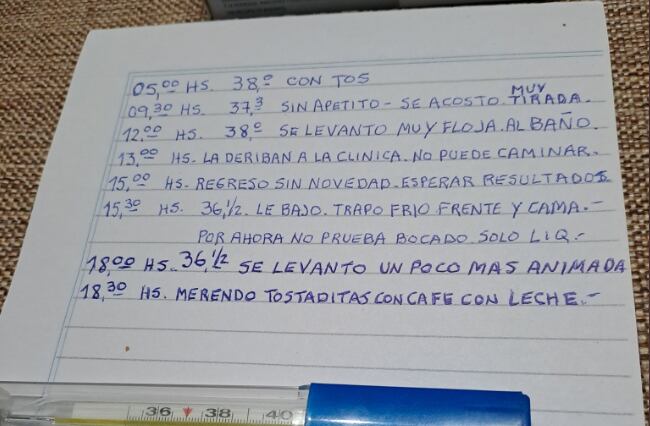 05,00 HS. 38,0 CON TOS
09,30 HS. 37,3 SIN APETITO - SE ACOSTO MUY TIRADA.
12,00 HS. 38,0 SE LEVANTO MUY FLOJA. AL BAÑO.
13,00 HS. LA DERIBAN A LA CLINICA. NO PUEDE CAMINAR.
15,00 HS. REGRESO SIN NOVEDAD. ESPERAR RESULTADOS
15,30 HS. 36,1/2. LE BAJO. TRAPO FRIO FRENTE Y CAMA.-
POR AHORA NO PRUEBA BOCADO. SOLO LIQ.-
18,00 HS. 36,1/2 SE LEVANTO UN POCO MAS ANIMADA
18,30 HS. MERENDO TOSTADITAS CON CAFE CON LECHE.-
36 38 40